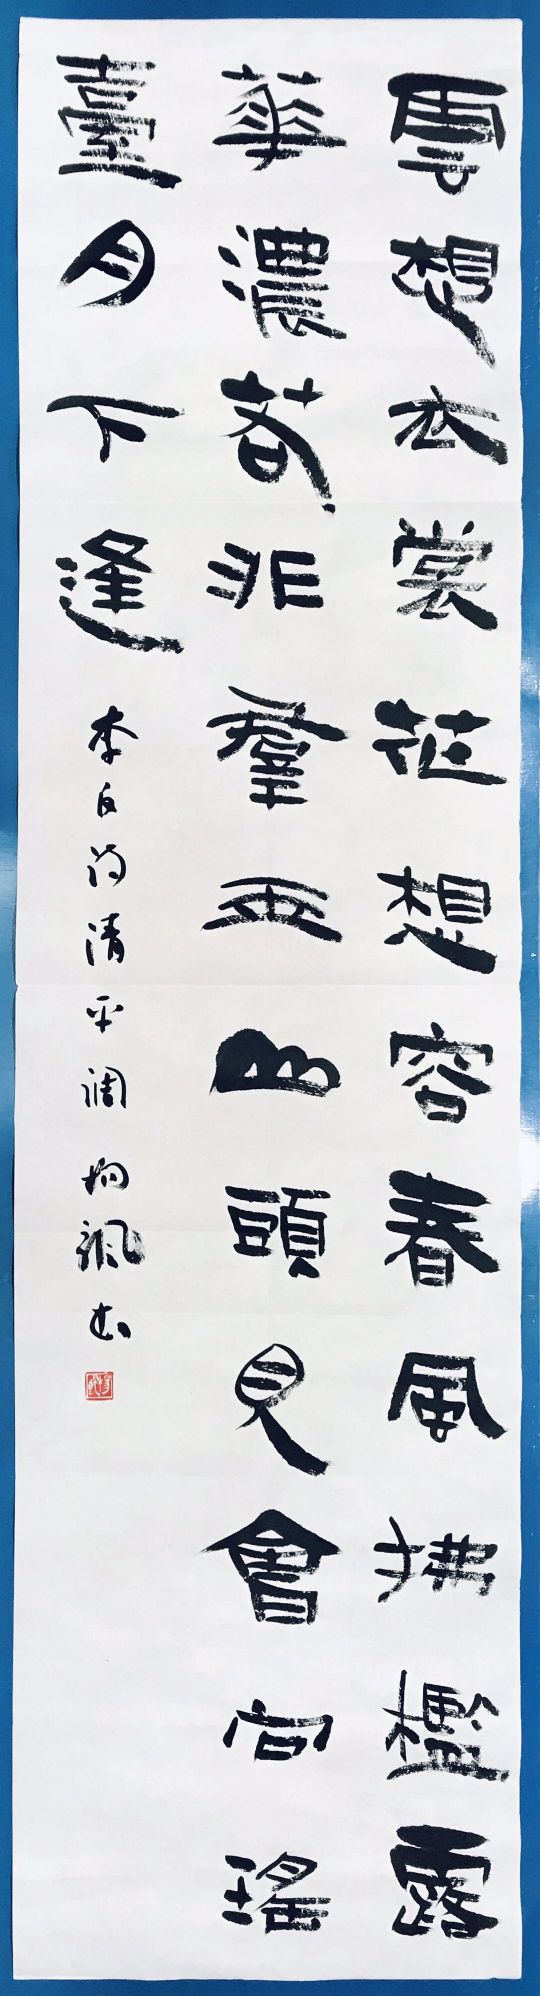 雲想衣裳花想容春風拂檻露
華濃若非羣玉山頭見會向瑤
臺月下逢
李白诗清平调 书